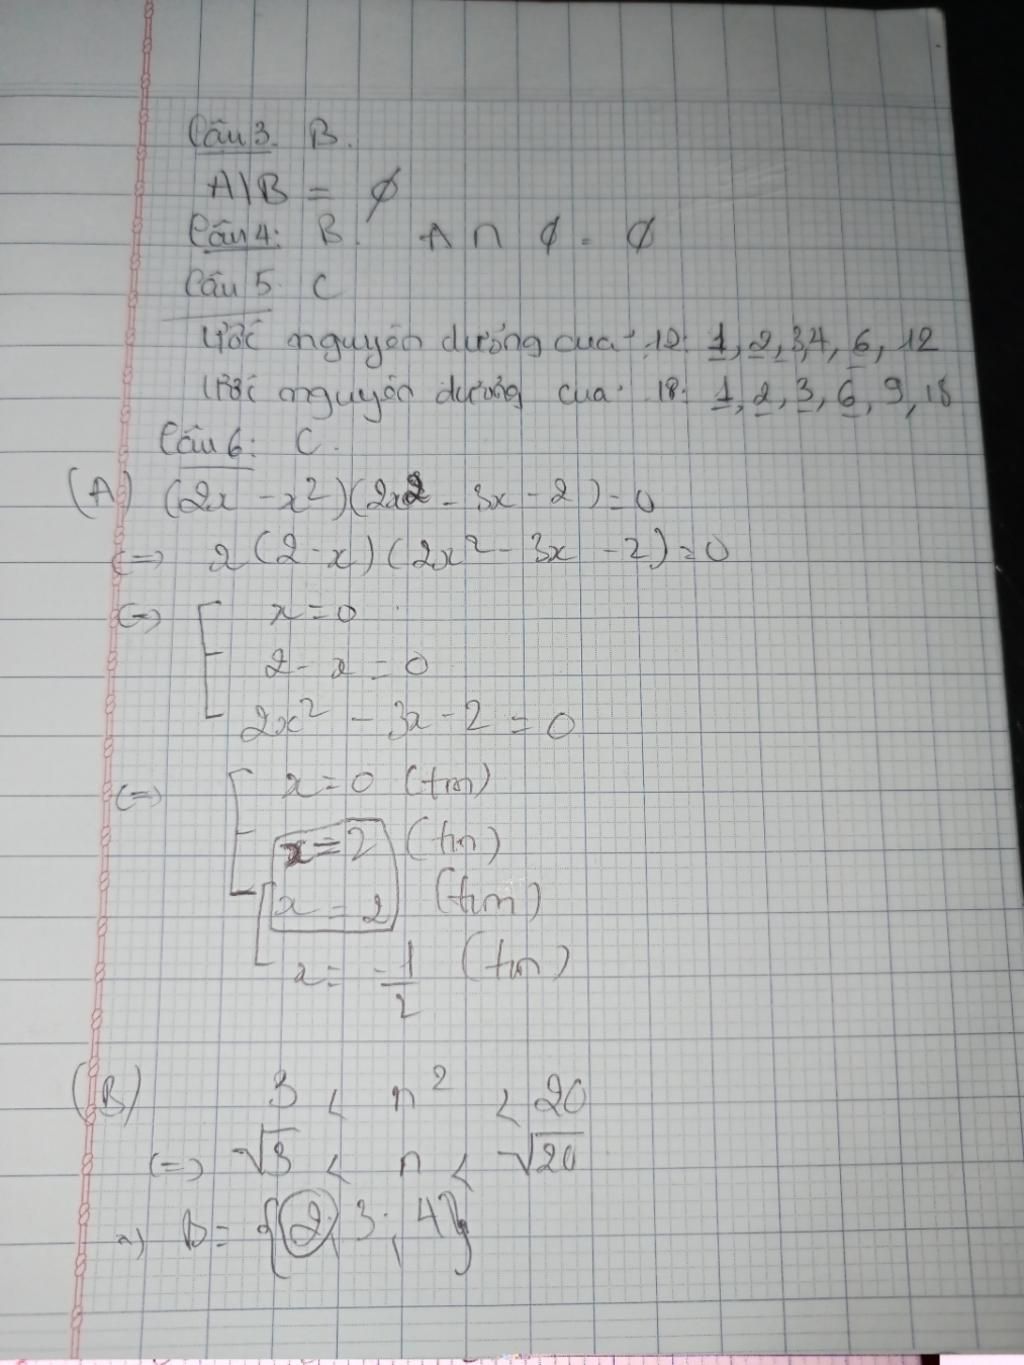 Câu 3. B.
A\B = ∅
Câu 4: B. A ∩ ∅ = ∅
Câu 5. C
Ước nguyên dương của 12: 1, 2, 3, 4, 6, 12
Ước nguyên dương của 18: 1, 2, 3, 6, 9, 18
Câu 6: C.
(A) (2x - x²)(2x2 - 3x - 2) = 0
(=) x(2-x)(2x² - 3x - 2) = 0
(=) [ x = 0
2 - x = 0
2x² - 3x - 2 = 0
(=) [ x = 0 (tm)
x = 2 (tm)
[ x = 2 (tm)
x = -1/2 (tm)
(B) 3 < n² < 20
(=) √3 < n < √20
=) B = {2; 3; 4}